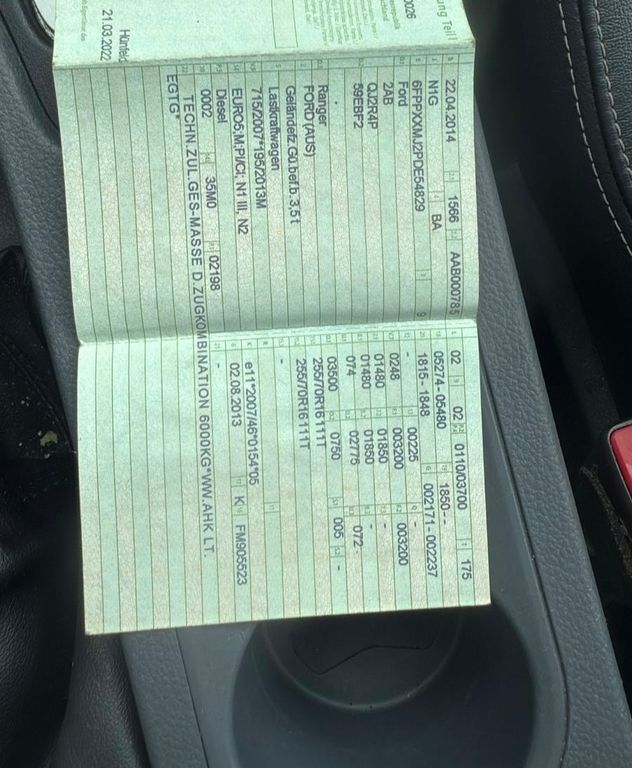 ung Teil I
0026
22.04.2014 1566 AAB000785
N1G BA
6FPPXXMJ2PDE54829 9
Ford
2AB
QJ2R4P
59EBF2
Ranger
FORD (AUS)
Geländefz.Gü.bef.b. 3,5t
Lastkraftwagen
715/2007*195/2013M
EURO5;M;PI/CI; N1 III, N2
Diesel
0002 35M0 02198
TECHN.ZUL.GES-MASSE D.ZUGKOMBINATION 6000KG*WW.AHK LT.
EGTG*
02 02 0110/03700 175
05274-05480 1850--
1815-1848 002171-002237
- 00225 -
0248 003200 003200
01480 01850 -
01480 01850 -
074 02775 072-
03500 0750 005 -
255/70R16 111T
255/70R16 111T
-
e11*2007/46*0154*05
02.08.2013 K FM905523
-
Hünfeld
21.03.2022